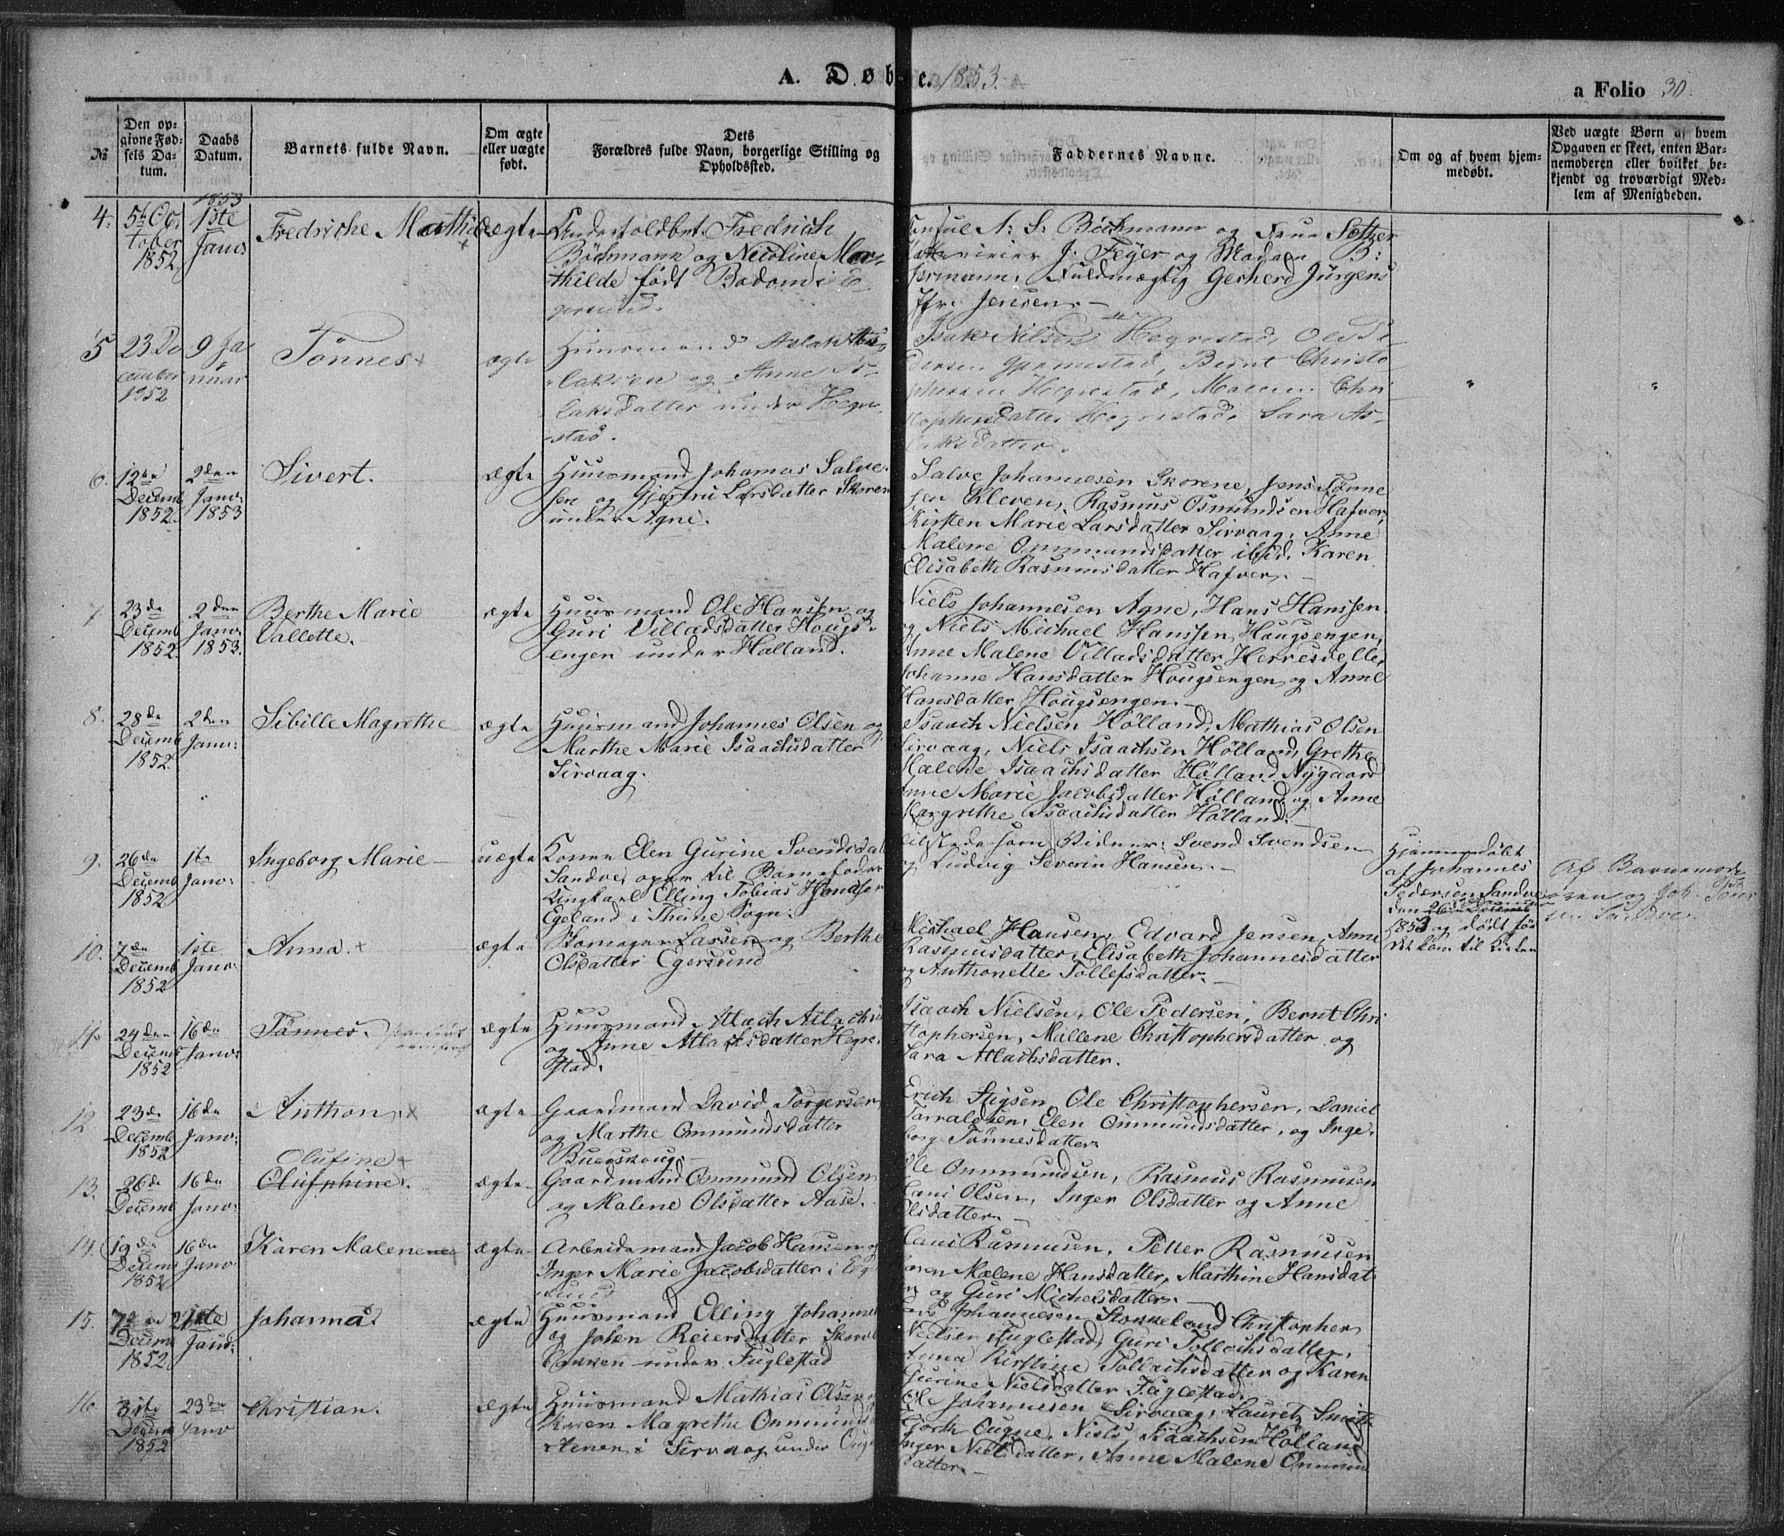 A. Døbte. 1853.
a Folio 30.
№
Den op-
givne Fød-
sels Da-
tum.
Daabs
Datum.
Barnets fulde Navn.
Om ægte
eller uægte
født.
Dets
Forældres fulde Navn, borgerlige Stilling og
Opholdssted.
Faddernes Navne.
Om og af hvem hjem-
medøbt.
Ved uægte Børn af hvem
Opgaven er skeet, enten Bar-
nemoderen eller hvilket be-
kjendt og troværdigt Med-
lem af Menigheden.
4.
5te Oc-
tober
1852
1853
1ste
Janr
Fredriche Mathilde
ægte
Fredrich
Böchmann og Nicoline Mar-
thilde født Bodom i E-
gersund.
Consul N: S: Böchmann og Frue
J. Feyer og Madam B:
Fuldmægtig Gerherd Jürgens
Jfr. Jensen.
5
23 De
cember
1852
9 Ja
nuar
Tönnes
ægte
Huusmand Aslak As-
laksen og Anne As-
laksdatter under Hegre-
stad.
Isak Nilsen Hegrestad, Ole Pe-
dersen Gjermestad, Bernt Christo
phersen Hegrestad, Malene Chri
stophersdatter Hegrestad, Sara As-
laksdatter.
6.
12te
Decemb
1852.
2den
Janr
1853
Sivert.
ægte
Huusmand Johannes Salve-
sen og Gjertru Larsdatter Skoren
under Agne.
Salve Johannesen Skorene, Jens Tönne
sen Kleven, Rasmus Osmundsen Hafver,
Kirsten Marie Larsdatter Sirvaag, Anne
Malene Ommundsdatter ibid. Karen
Elisabeth Rasmusdatter Hafver.
7.
23de
Decemb
1852.
2den
Janr
1853.
Berthe Marie
Vallette.
ægte
Huusmand Ole Hansen og
Guri Villadsdatter Hougs-
engen under Hølland.
Niels Johannesen Agne, Hans Hanssen
og Niels Michael Hanssen Hougsengen,
Anne Malene Villadsdatter Herresvelle,
Johanne Hansdatter Hougsengen og Anne
Hansdatter Hougsengen.
8.
28de
Decemb
1852.
2den
Janr:
Sibille Magrethe
ægte
Huusmand Johannes Olsen og
Marthe Marie Isaachsdatter
Sirvaag.
Isaach Nielsen Hölland, Mathias Olsen
Sirvaag, Niels Isaachsen Hölland, Grethe
Malene Isaachsdatter Hölland Nygaard
Anne Marie Jacobsdatter Hölland og Anne
Margrethe Isaachsdatter Hölland.
9.
26de
Decemb
1852
1te
Janr:
Ingeborg Marie
uægte
Konen Elen Gurine Svendsdat
Sandve, opgav til Barnefader
Ungkarl Elling Tobias
Egeland i Thime Sogn.
tilstede som Vidner: Svend Svendsen
og Ludvig Severin Hansen.
Hjemmedøbt
af Johannes
Pedersen Sandve
den 26
1853 og dødt før
det kom til Kirken
Af Barnemod-
eren og Joh. Peder
sen Sandve.
10.
7de
Decemb
1852
1ste
Janr
Anna.
ægte
Skomager Lassen og Berthe
Olsdatter Egersund
Michael Hansen, Edvard Jensen, Anne
Rasmusdatter, Elisabeth Johannesdatter
og Anthonette Tollefsdatter.
11.
24den
Decemb
1852
16de
Janr:
Tönnes.
ægte
Huusmand Atlach Atlachs
og Anne Atlachsdatter Hegre-
stad.
Isaach Nielsen, Ole Pedersen, Bernt Chri
stophersen, Mallene Christophersdatter og
Sara Atlachsdatter.
12
23de
Decemb
1852
16de
Janr:
Anthon
ægte
Gaardmand David Torgersen
og Marthe Ommundsdatter
Erich Stigsen, Ole Christophersen, Daniel
Torvaldsen, Elen Ommundsdatter, og Inge-
borg Tönnesdatter.
13.
26de
Decemb
16de
Janr:
Olufine
Olufphine.
ægte
Gaardmand Ommund Olsen
og Malene Olsdatter Aase.
Ole Ommundsen, Rasmus Rasmussen
Hans Olsen, Inger Olsdatter og Anne
Olsdatter.
14.
19de
Decemb
1852
16de
Janr:
Karen Malene
ægte
Arbeidsmand Jacob Hansen og
Inger Marie Jacobsdatter i Eg
ersund
Hans Rasmusen, Petter Rasmusen
Karen Malene Hansdatter, Marthine Hansdat
ter og Guri Michelsdatter.
15.
7de
Decemb
1852.
21ste
Janr.
Johanna
ægte
Huusmand Elling Johannes
og Joren Reiersdatter
under Fuglestad
Johannesen Stokkeland Christopher
Nielsen Fuglestad, Guri Tollachsdatter,
Anna Kirstine Tollachsdatter og Karen
Gurine Nielsdatter Fuglestad.
16
8de
Decemb
1852
23de
Janr
Christian.
ægte
Huusmand Mathias Olsen
Karen Magrethe Ommunds
i Sirvaag under
Ole Johannesen Sirvaag, Lauretz Smith
Niels Isaachsen Hölland
Inger Nielsdatter, Anne Malene Ommun
datter.